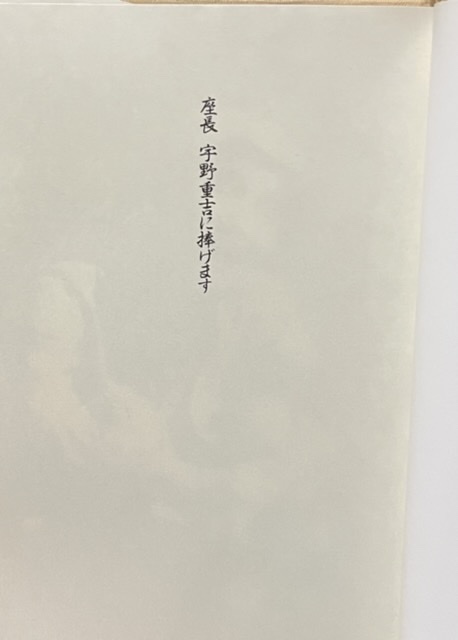 座長 宇野重吉に捧げます